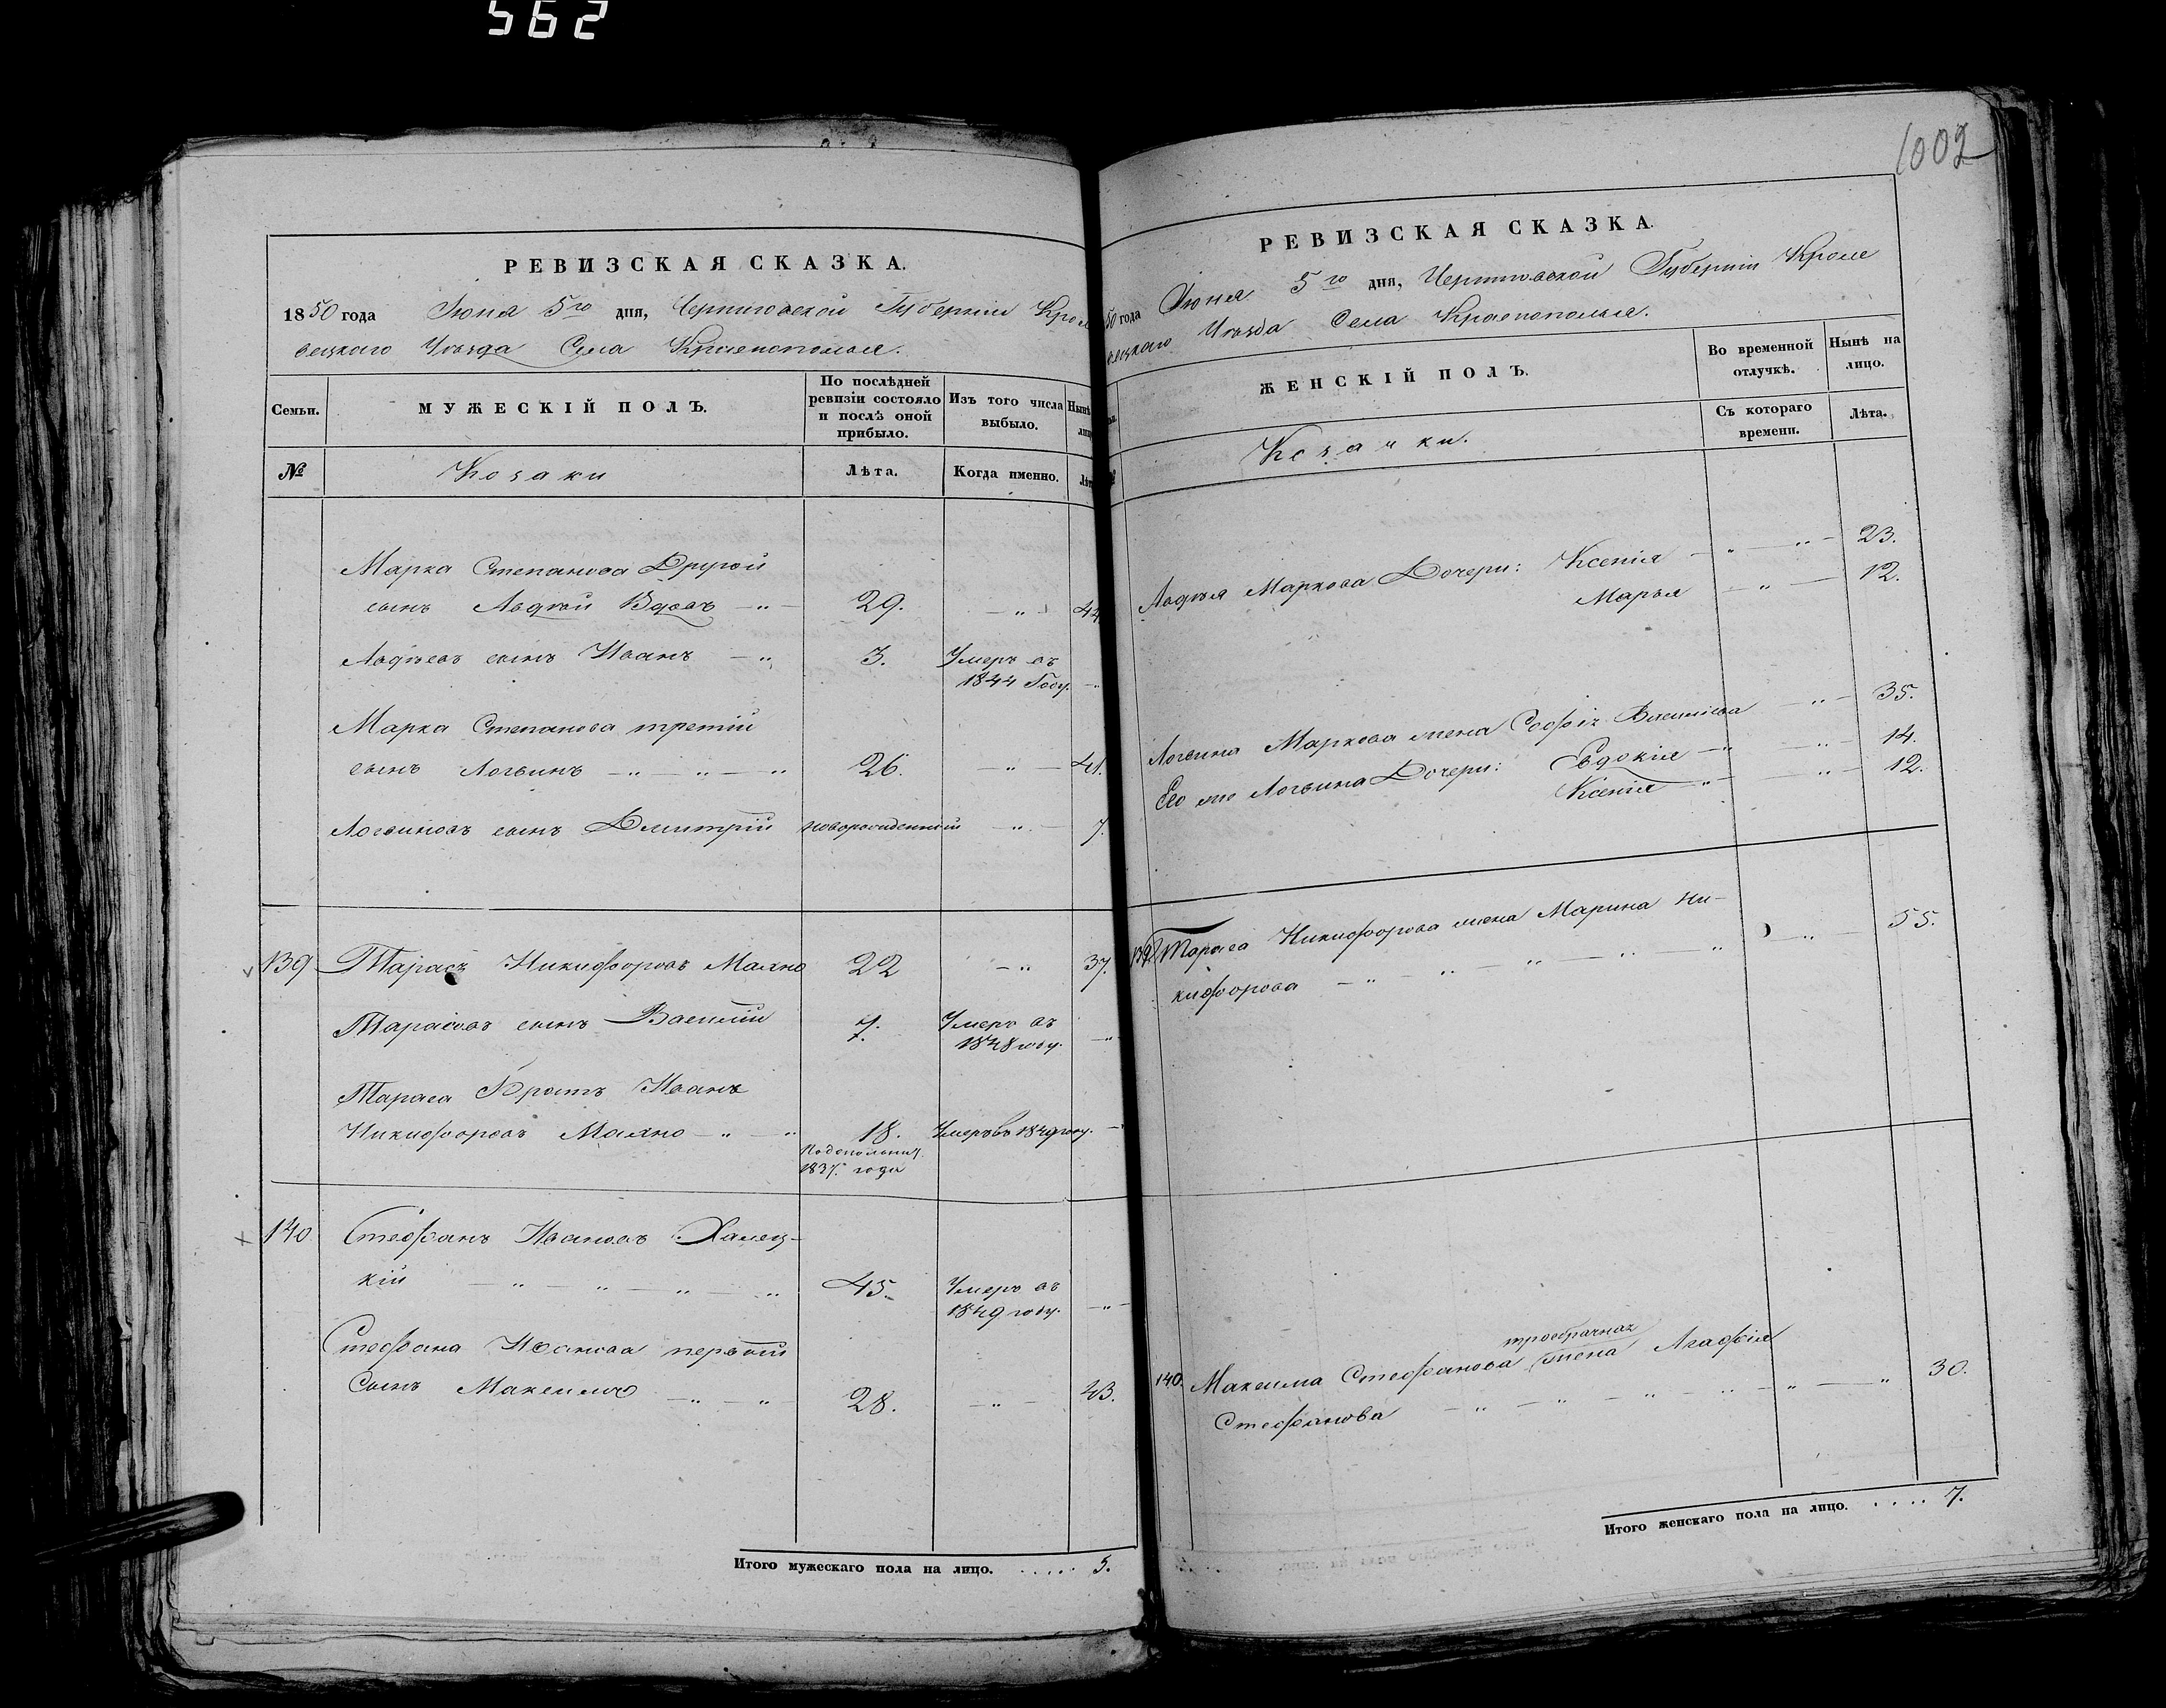 562
РЕВИЗСКАЯ СКАЗКА.
1850 года Июня 5го дня, Черниговской Губерніи Кроле
вецкаго Уѣзда Села Краснополья.
Семьи.
МУЖЕСКІЙ ПОЛЪ.
По послѣдней
ревизіи состояло
и послѣ оной
прибыло.
Изъ того числа
выбыло.
Нынѣ
лиц
№
Козаки
Лѣта.
Когда именно.
Лѣт
Марка Степанова Другой
сынъ Авдѣй Вдовъ 29. 44
Авдѣевъ сынъ Иванъ 3. Умеръ въ
1844 Году.
Марка Степанова третій
сынъ Логвинъ 26. 41.
Логвиновъ сынъ Дмитрій новорожденный 7.
139 Тарасъ Никифоровъ 22 37.
Тарасовъ сынъ Василій 7. Умеръ въ
1848 году.
Тараса Братъ Иванъ
Никифоровъ 18. Умеръ въ 1849 году.
1837. года
140. Стефанъ Ивановъ Халец-
кій 45. Умеръ въ
1849 году.
Стефана Иванова первый
Сынъ Максимъ 28. 43.
Итого мужескаго пола на лицо. . . . . . 5.
1002
РЕВИЗСКАЯ СКАЗКА.
50 года Июня 5го дня, Черниговской Губерніи Кроле
вецкаго Уѣзда Села Краснополья.
ЖЕНСКІЙ ПОЛЪ.
Во временной
отлучкѣ.
Нынѣ на
лицо.
Съ котораго
времени.
Лѣта.
Козачки.
Авдѣя Маркова Дочери: Ксенія 23.
Марья 12.
Логвина Маркова жена Софія Васильева 35.
Его же Логвина Дочери: Евдокія 14.
Ксенія 12.
139. Тараса Никифорова жена Марина Ни-
кифорова 55.
140. Максима Стефанова троебрачная жена Агафія
Стефанова 30.
Итого женскаго пола на лицо. . . . . 7.